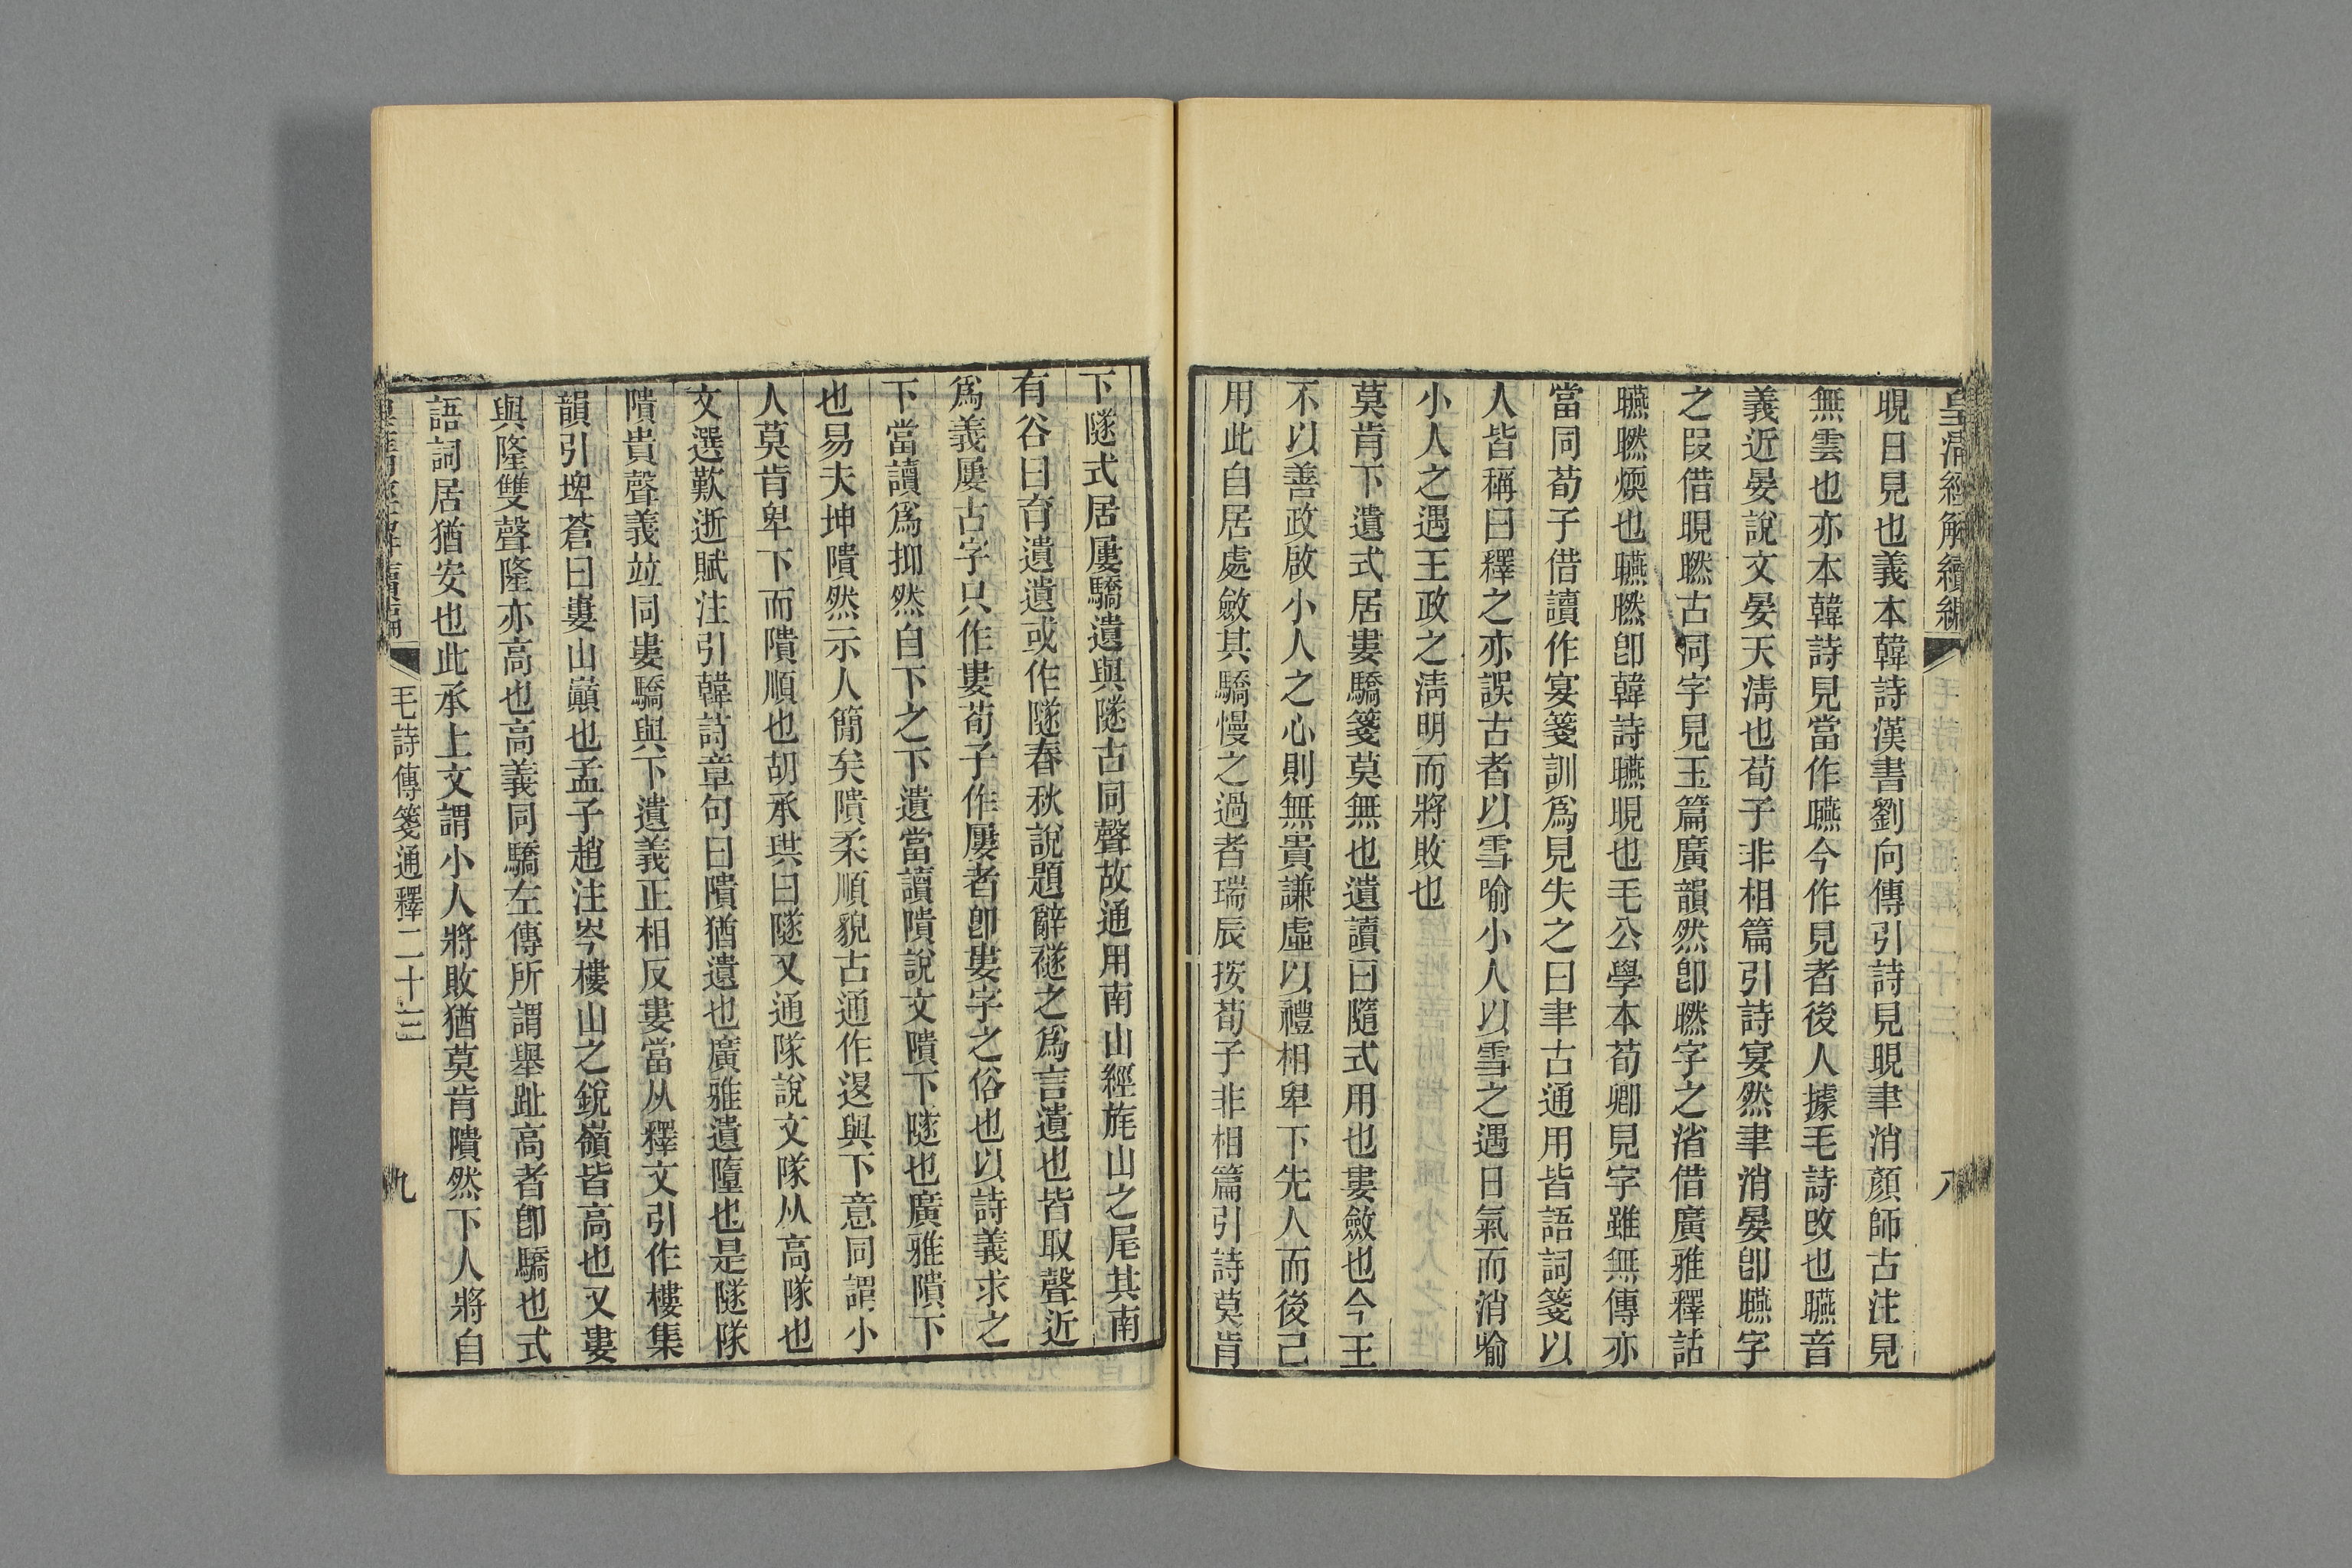 皇清經解續編
八
晛日見也義本韓詩漢書劉向傳引詩見晛聿消顏師古注見
無雲也亦本韓詩見當作曣今作見者後人據毛詩改也曣音
義近晏說文晏天淸也荀子非相篇引詩宴然聿消晏卽曣字
之叚借晛㬗古同字見玉篇廣韻然卽㬗字之渻借廣雅釋詁
曣㬗煗也曣㬗卽韓詩曣晛也毛公學本荀卿見字雖無傳亦
當同荀子借讀作宴箋訓爲見失之曰聿古通用皆語詞箋以
人皆稱曰釋之亦誤古者以雪喻小人以雪之遇日氣而消喻
小人之遇王政之淸明而將敗也
莫肯下遺式居婁驕箋莫無也遺讀曰隨式用也婁斂也今王
不以善政啟小人之心則無貴謙虛以禮相卑下先人而後己
用此自居處斂其驕慢之過者瑞辰按荀子非相篇引詩莫肯
下隧式居屢驕遺與隧古同聲故通用南山經旄山之尾其南
有谷曰育遺遺或作隧春秋說題辭襚之爲言遺也皆取聲近
爲義屢古字只作婁荀子作屢者卽婁字之俗也以詩義求之
下當讀爲抑然自下之下遺當讀隤說文隤下隧也廣雅隤下
也易夫坤隤然示人簡矣隤柔順貌古通作退與下意同謂小
人莫肯卑下而隤順也胡承珙曰隧又通隊說文隊从高隊也
文選歎逝賦注引韓詩章句曰隤猶遺也廣雅遺墮也是隧隊
隤貴聲義竝同婁驕與下遺義正相反婁當从釋文引作樓集
韻引埤蒼曰婁山巔也孟子趙注岑樓山之銳嶺皆高也又婁
與隆雙聲隆亦高也高義同驕左傳所謂舉趾高者卽驕也式
語詞居猶安也此承上文謂小人將敗猶莫肯隤然下人將自
毛詩傳箋通釋二十三
九